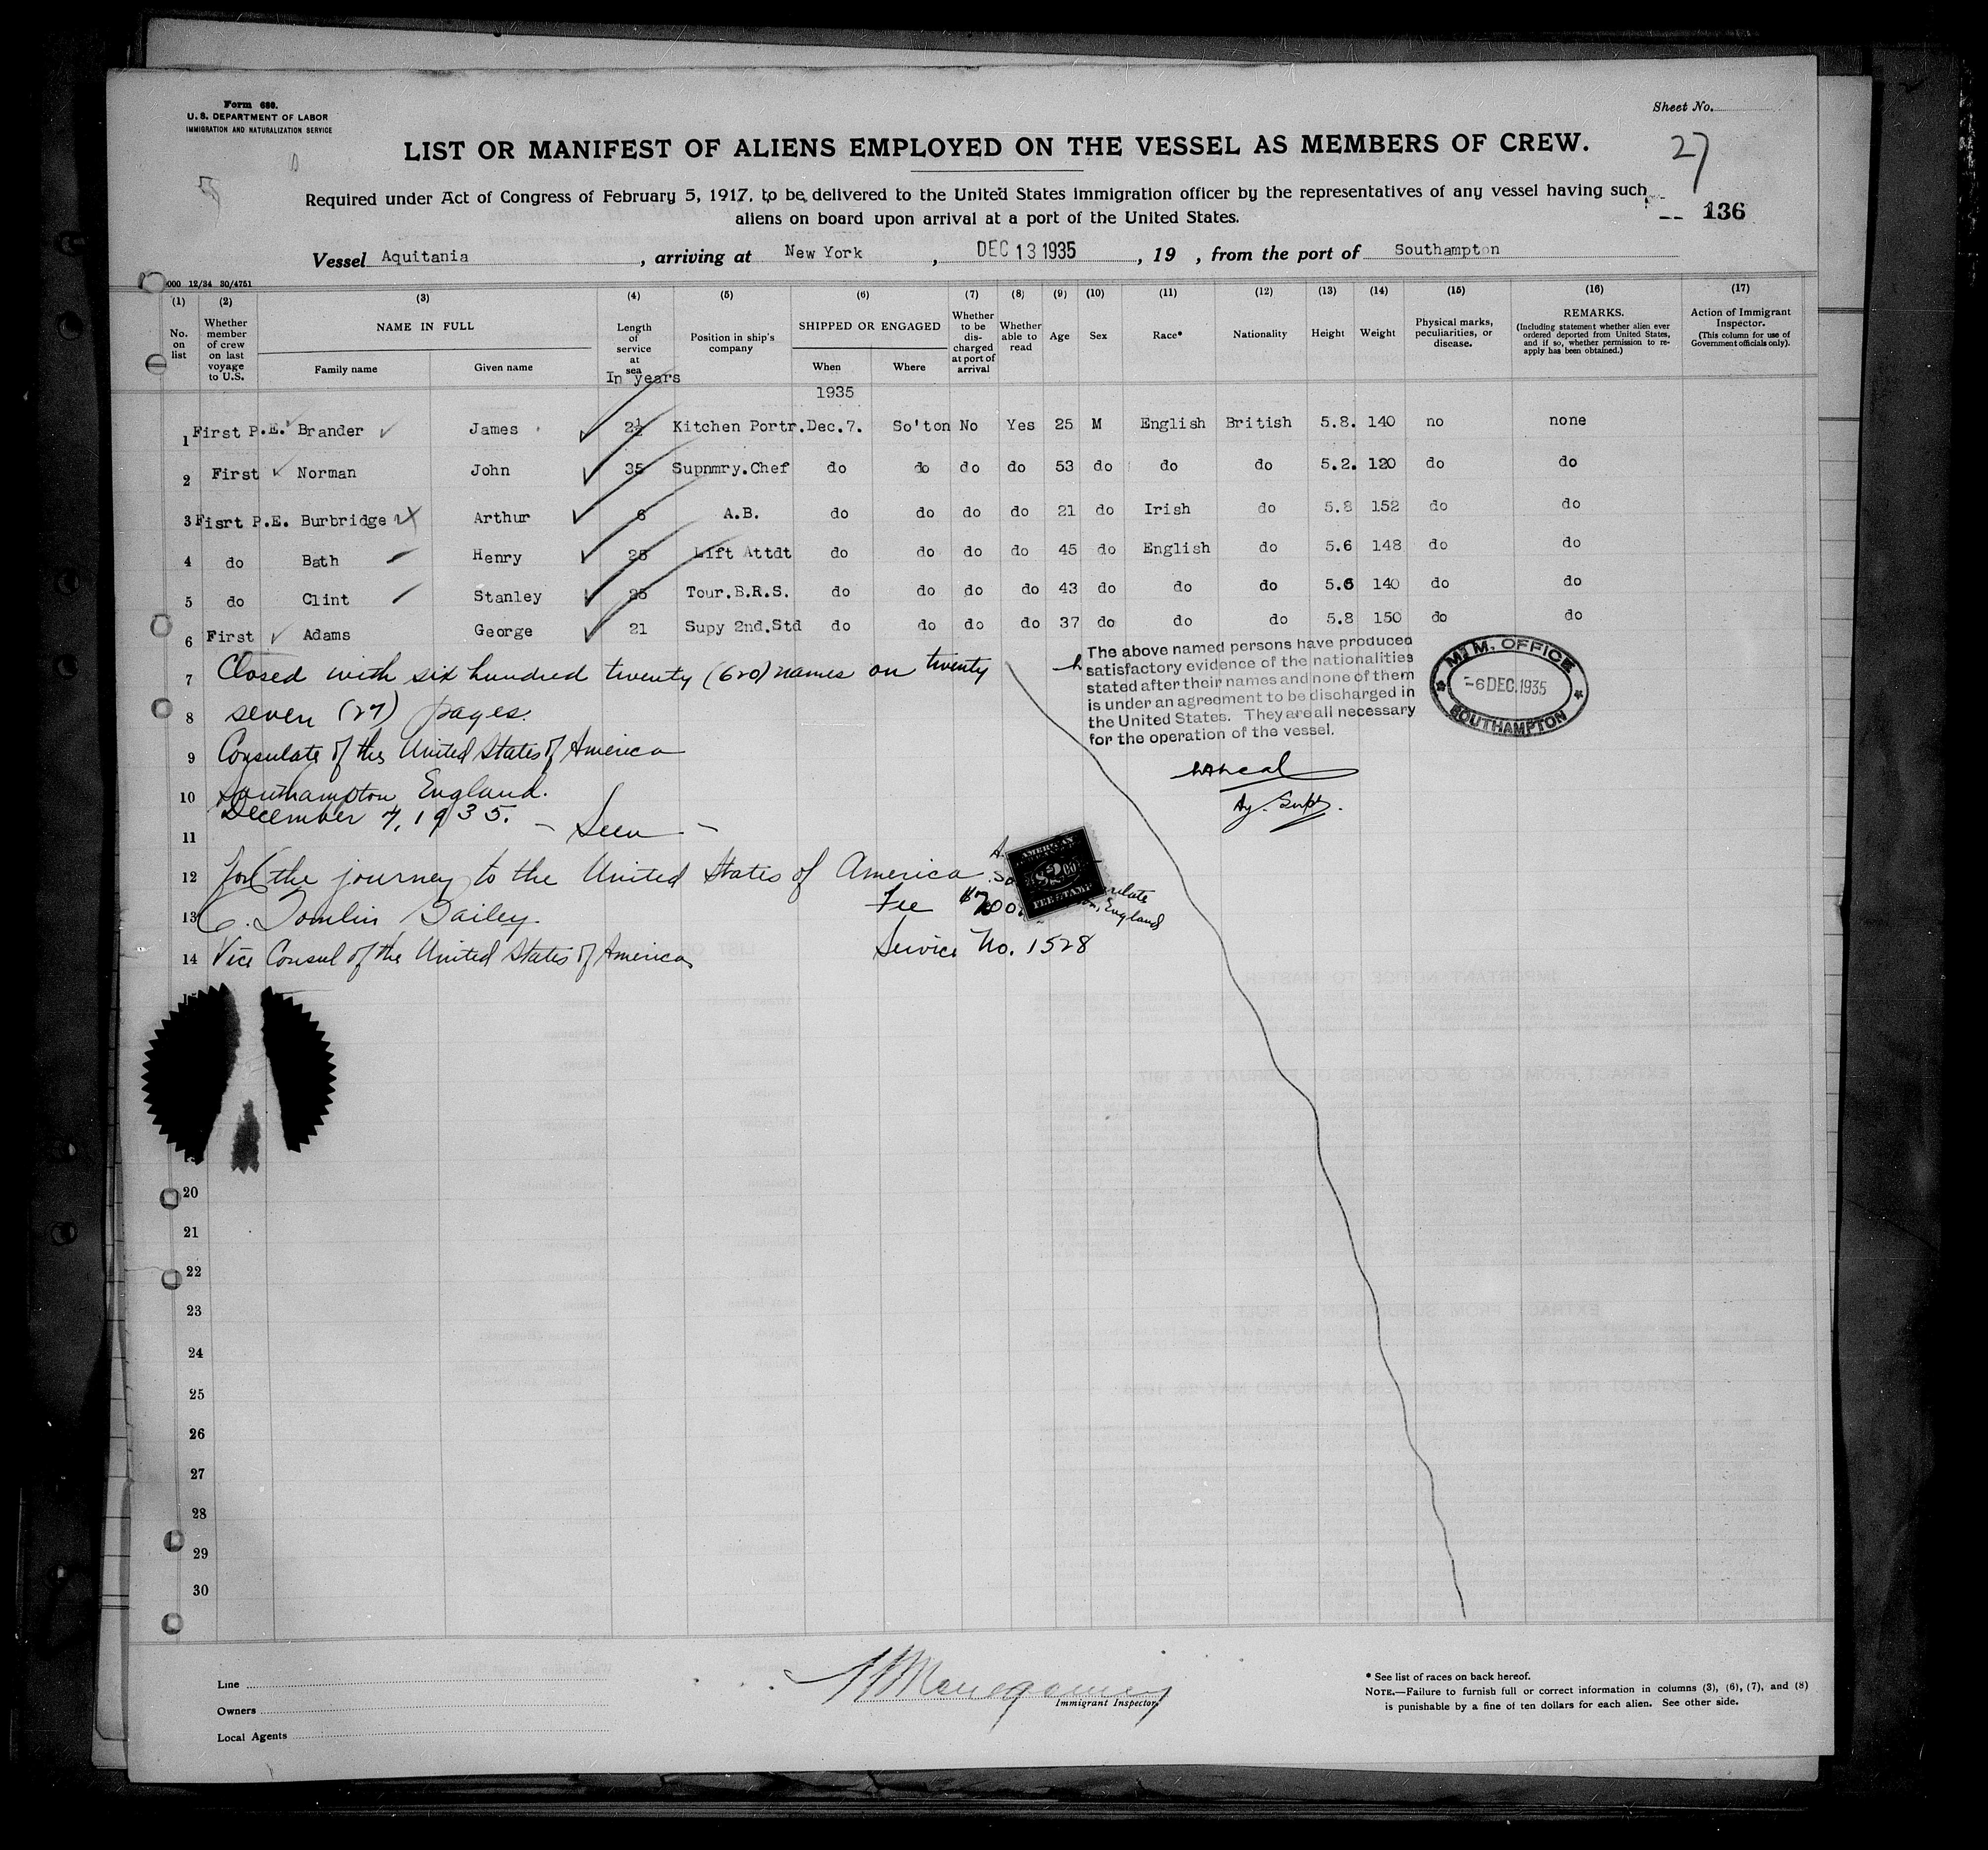 Form 680.
U. S. DEPARTMENT OF LABOR
IMMIGRATION AND NATURALIZATION SERVICE
Sheet No.
27
LIST OR MANIFEST OF ALIENS EMPLOYED ON THE VESSEL AS MEMBERS OF CREW.
Required under Act of Congress of February 5, 1917, to be delivered to the United States immigration officer by the representatives of any vessel having such
aliens on board upon arrival at a port of the United States.
136
Vessel Aquitania, arriving at New York, DEC 13 1935, 19 , from the port of Southampton
000 12/34 30/4751
(1) (2) (3) (4) (5) (6) (7) (8) (9) (10) (11) (12) (13) (14) (15) (16) (17)
No. on list
Whether member of crew on last voyage to U.S.
NAME IN FULL
Family name
Given name
Length of service at sea
In years
Position in ship's company
SHIPPED OR ENGAGED
When
Where
1935
Whether to be discharged at port of arrival
Whether able to read
Age
Sex
Race*
Nationality
Height
Weight
Physical marks, peculiarities, or disease.
REMARKS.
(Including statement whether alien ever ordered deported from United States, and if so, whether permission to reapply has been obtained.)
Action of Immigrant Inspector.
(This column for use of Government officials only).
1 First P.E. Brander James 2½ Kitchen Portr. Dec.7. So'ton No Yes 25 M English British 5.8. 140 no none
2 First Norman John 35 Supnmry.Chef do do do do 53 do do do 5.2. 120 do do
3 Fisrt P.E. Burbridge Arthur 6 A.B. do do do do 21 do Irish do 5.8 152 do do
4 do Bath Henry 25 Lift Attdt do do do do 45 do English do 5.6 148 do do
5 do Clint Stanley 25 Tour.B.R.S. do do do do 43 do do do 5.6 140 do do
6 First Adams George 21 Supy 2nd.Std do do do do 37 do do do 5.8 150 do do
7 Closed with six hundred twenty (620) names on twenty
8 seven (27) pages.
9 Consulate of the United States of America
10 Southampton England.
December 7, 1935. - Seen -
11
12 for the journey to the United States of America
13 C. Tomlin Bailey.
14 Vice Consul of the United States of America
Fee
Service No. 1528
AMERICAN
$2.00
FEE STAMP
England
The above named persons have produced
satisfactory evidence of the nationalities
stated after their names and none of them
is under an agreement to be discharged in
the United States. They are all necessary
for the operation of the vessel.
Ag. Supt.
M.M. OFFICE
-6 DEC. 1935
SOUTHAMPTON
20
21
22
23
24
25
26
27
28
29
30
Line
Owners
Local Agents
Immigrant Inspector.
* See list of races on back hereof.
NOTE.—Failure to furnish full or correct information in columns (3), (6), (7), and (8)
is punishable by a fine of ten dollars for each alien. See other side.